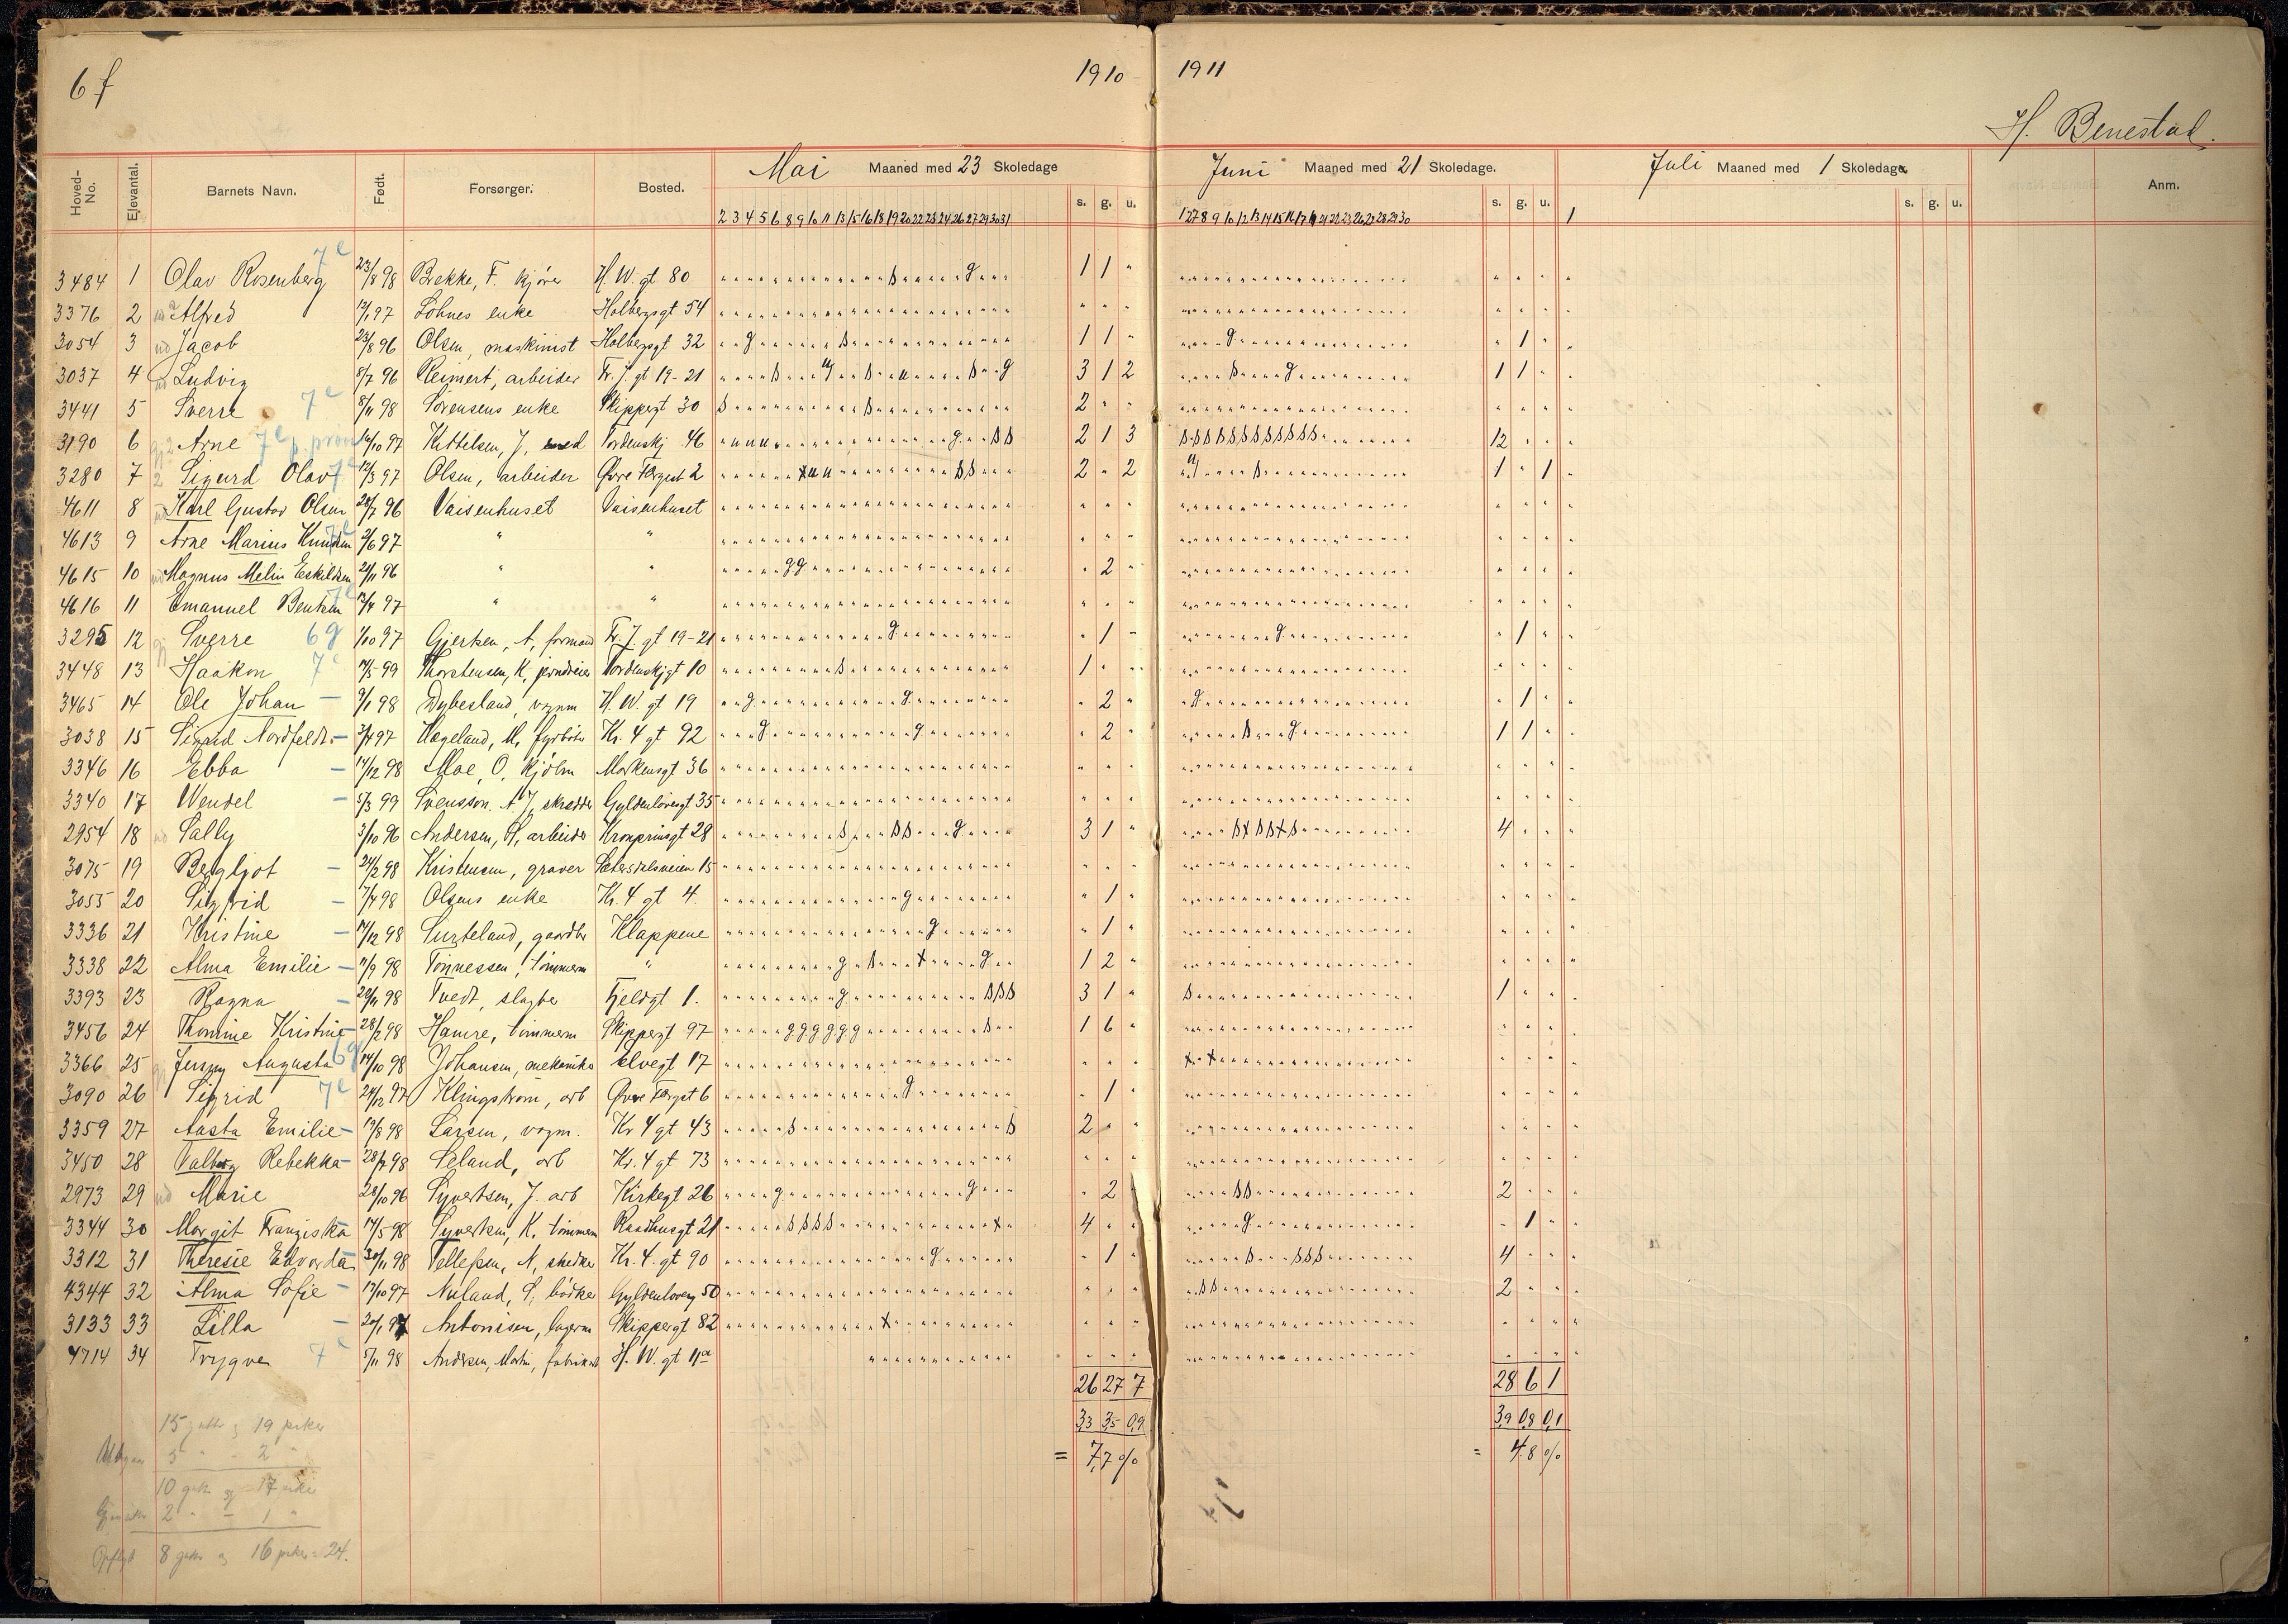 6 f
1910 - 1911
H. Benestad.
Hoved-No. Elevantal. Barnets Navn. Født. Forsørger. Bosted. Mai Maaned med 23 Skoledage s. g. u. Juni Maaned med 21 Skoledage. s. g. u. Juli Maaned med 1 Skoledage s. g. u. Anm.
2 3 4 5 6 8 9 10 11 13 15 16 18 19 20 22 23 24 26 27 29 30 31 1
3484 1 Olav Rosenberg 7e 23/8 98 Brekke, F. kjører H. W. gt 80 1 1
3376 2 Alfred 12/1 97 Lohnes enke Holbergsgt 54
3054 3 ud Jacob 23/8 96 Olsen, maskinist Holbergsgt 32 1 1 1
3037 4 ud Ludvig 8/7 96 Reimert, arbeider Fr. J. gt 19-21 3 1 2 1 1
3441 5 Sverre 7e 8/11 98 Sørensens enke Skippergt 30 2
3190 6 Arne 7e p. prøve 16/10 97 Kittelsen, J, smed Tordenskj 46 2 1 3 12
3280 7 Sigurd Olav 7e 12/3 97 Olsen, arbeider Øvre Torvgt 2 2 2 1 1
4611 8 Karl Gustav Olsen 28/7 96 Vaisenhuset Vaisenhuset
4613 9 Arne Marius Knudsen 2/6 97 " "
4615 10 ud Magnus Melin Eskildsen 24/11 96 " " 2
4616 11 Emanuel Bentsen 13/4 97 " "
3295 12 Sverre 6g 1/10 97 Gjertsen, A, formand Fr. J. gt 19-21 1 1
3448 13 Haakon 7e 17/5 99 Thorstensen, K, jerndreier Tordenskjgt 10 1
3465 14 Ole Johan - 9/1 98 Dybesland, vognm H. W. gt 19 2 1
3038 15 Sigrid Nordfeldt - 3/4 97 Hægeland, M, fyrbøter Kr. 4 gt 92 2 1 1
3346 16 Ebba - 14/12 98 Moe, O, kjølm Markensgt 36
3340 17 Wendel - 5/3 99 Svensson, A J, skrædder Gyldenløvesgt 35
2954 18 ud Sally 3/10 96 Andersen, H, arbeider Kronprinsgt 28 3 1 4
3075 19 Bergljot - 24/2 98 Kristensen, graver Sætersdalsveien 15
3055 20 Sigfrid - 7/4 98 Olsens enke Kr. 4 gt 4. 1
3336 21 Kristine - 14/12 98 Surteland, gaardbr Klappene 1
3338 22 Alma Emilie - 11/9 98 Tønnessen, tømmerm " 1 2
3393 23 Ragna - 29/11 98 Tvedt, slagter Fjeldgt 1. 3 1 1
3456 24 Thomine Kristine - 28/2 98 Hamre, tømmerm Skippergt 97 1 6
3366 25 Jenny Augusta 6g 14/10 98 Johansen, mekaniker Elvegt 17
3090 26 Sigrid 7e 24/12 97 Klingstrøm, arb Øvre Torvgt 6 1
3359 27 Aasta Emilie - 19/8 98 Larsen, vogm. Kr 4 gt 43 2
3450 28 Valborg Rebekka - 28/7 98 Seland, arb Kr. 4 gt 73
2973 29 ud Marie 28/10 96 Syvertsen, J. arb Kirkegt 26 2 2
3344 30 Margit Franziska - 17/5 98 Syvertsen, K, tømmerm Raadhusgt 21 4 1
3312 31 Theresie Edvarda - 30/11 98 Tellefsen, A, snedker Kr. 4. gt 90 1 4
4344 32 Alma Sofie - 13/10 97 Nuland, S, bødker Gyldenløvesg 50 2
3133 33 Lilla - 20/1 97 Antonisen, lagerm Skippergt 82
4714 34 Trygve 7e 5/11 98 Andersen, Martin, fabrikarb H. W. gt 11a
26 27 7 28 6 1
3,3 3,5 0,9 3,9 0,8 0,1
= 7,7 % = 4.8 %
15 gutter og 19 piker
Utgaar 5 " - 2 "
10 gutter og 17 piker
2 " - 1 "
Opflyt 8 gutter og 16 piker = 24.